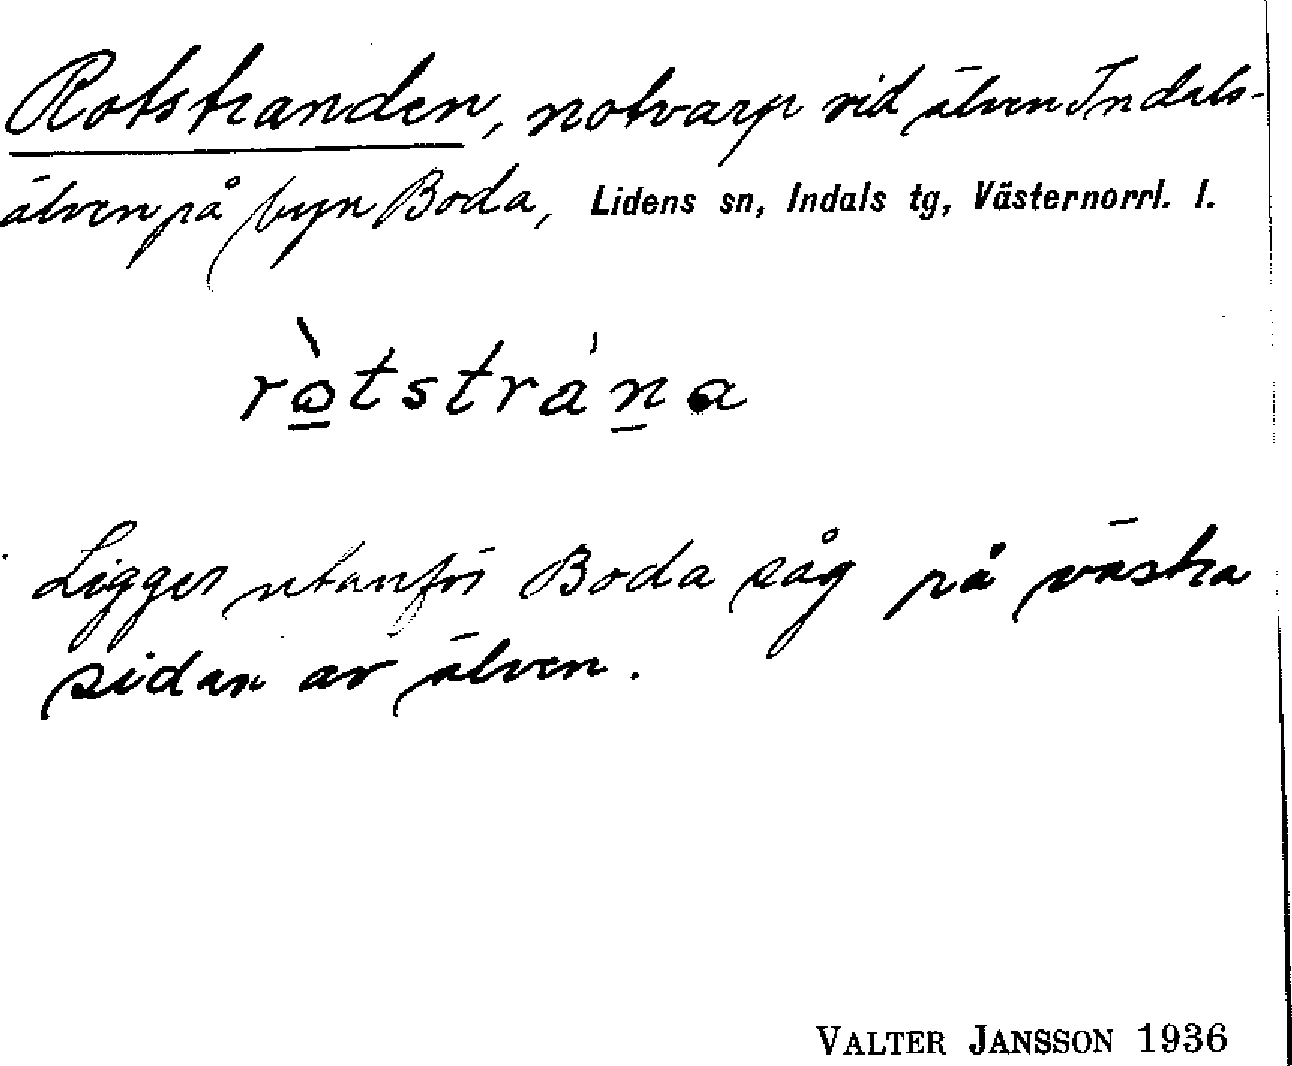 Rotstranden, notvarp vid älven Indals-
älven på byn Boda, Lidens sn, Indals tg, Västernorrl. l.
ròtstrána
Ligger utanför Boda såg på västra
sidan av älven.
VALTER JANSSON 1936